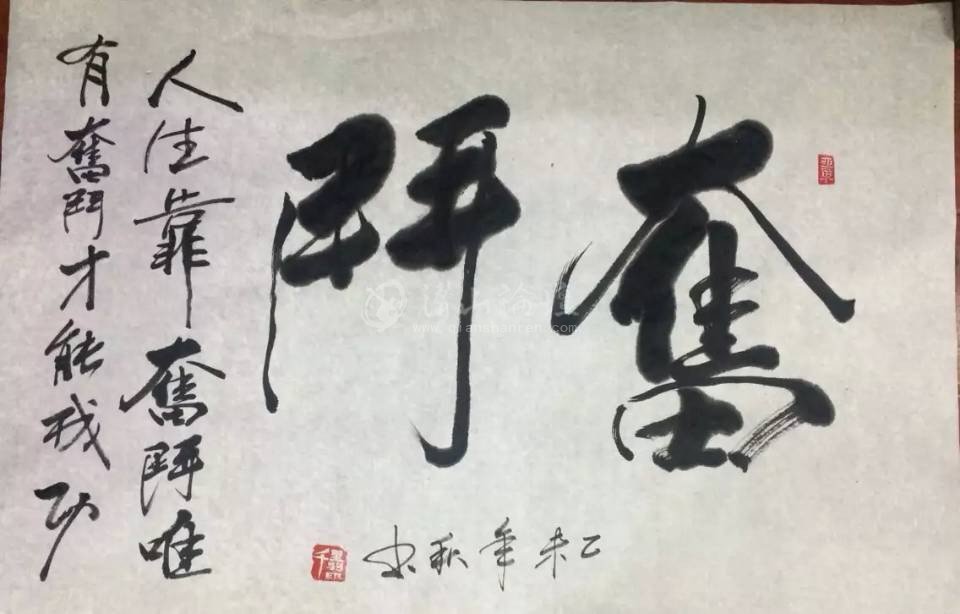 奮鬥
乙未年秋书
人生靠奮鬥唯
有奮鬥才能成功
www.qianshanren.com